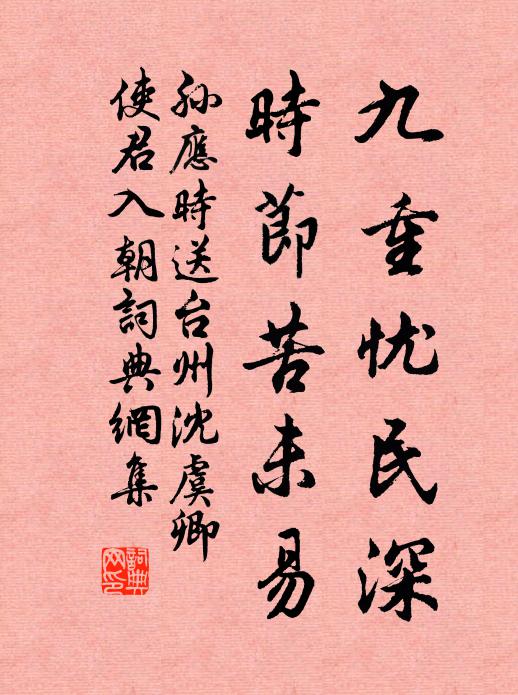 九重忧民深
時節苦未易
孙應時送台州沈虞卿
使君入朝詞典網集
詞典
网印